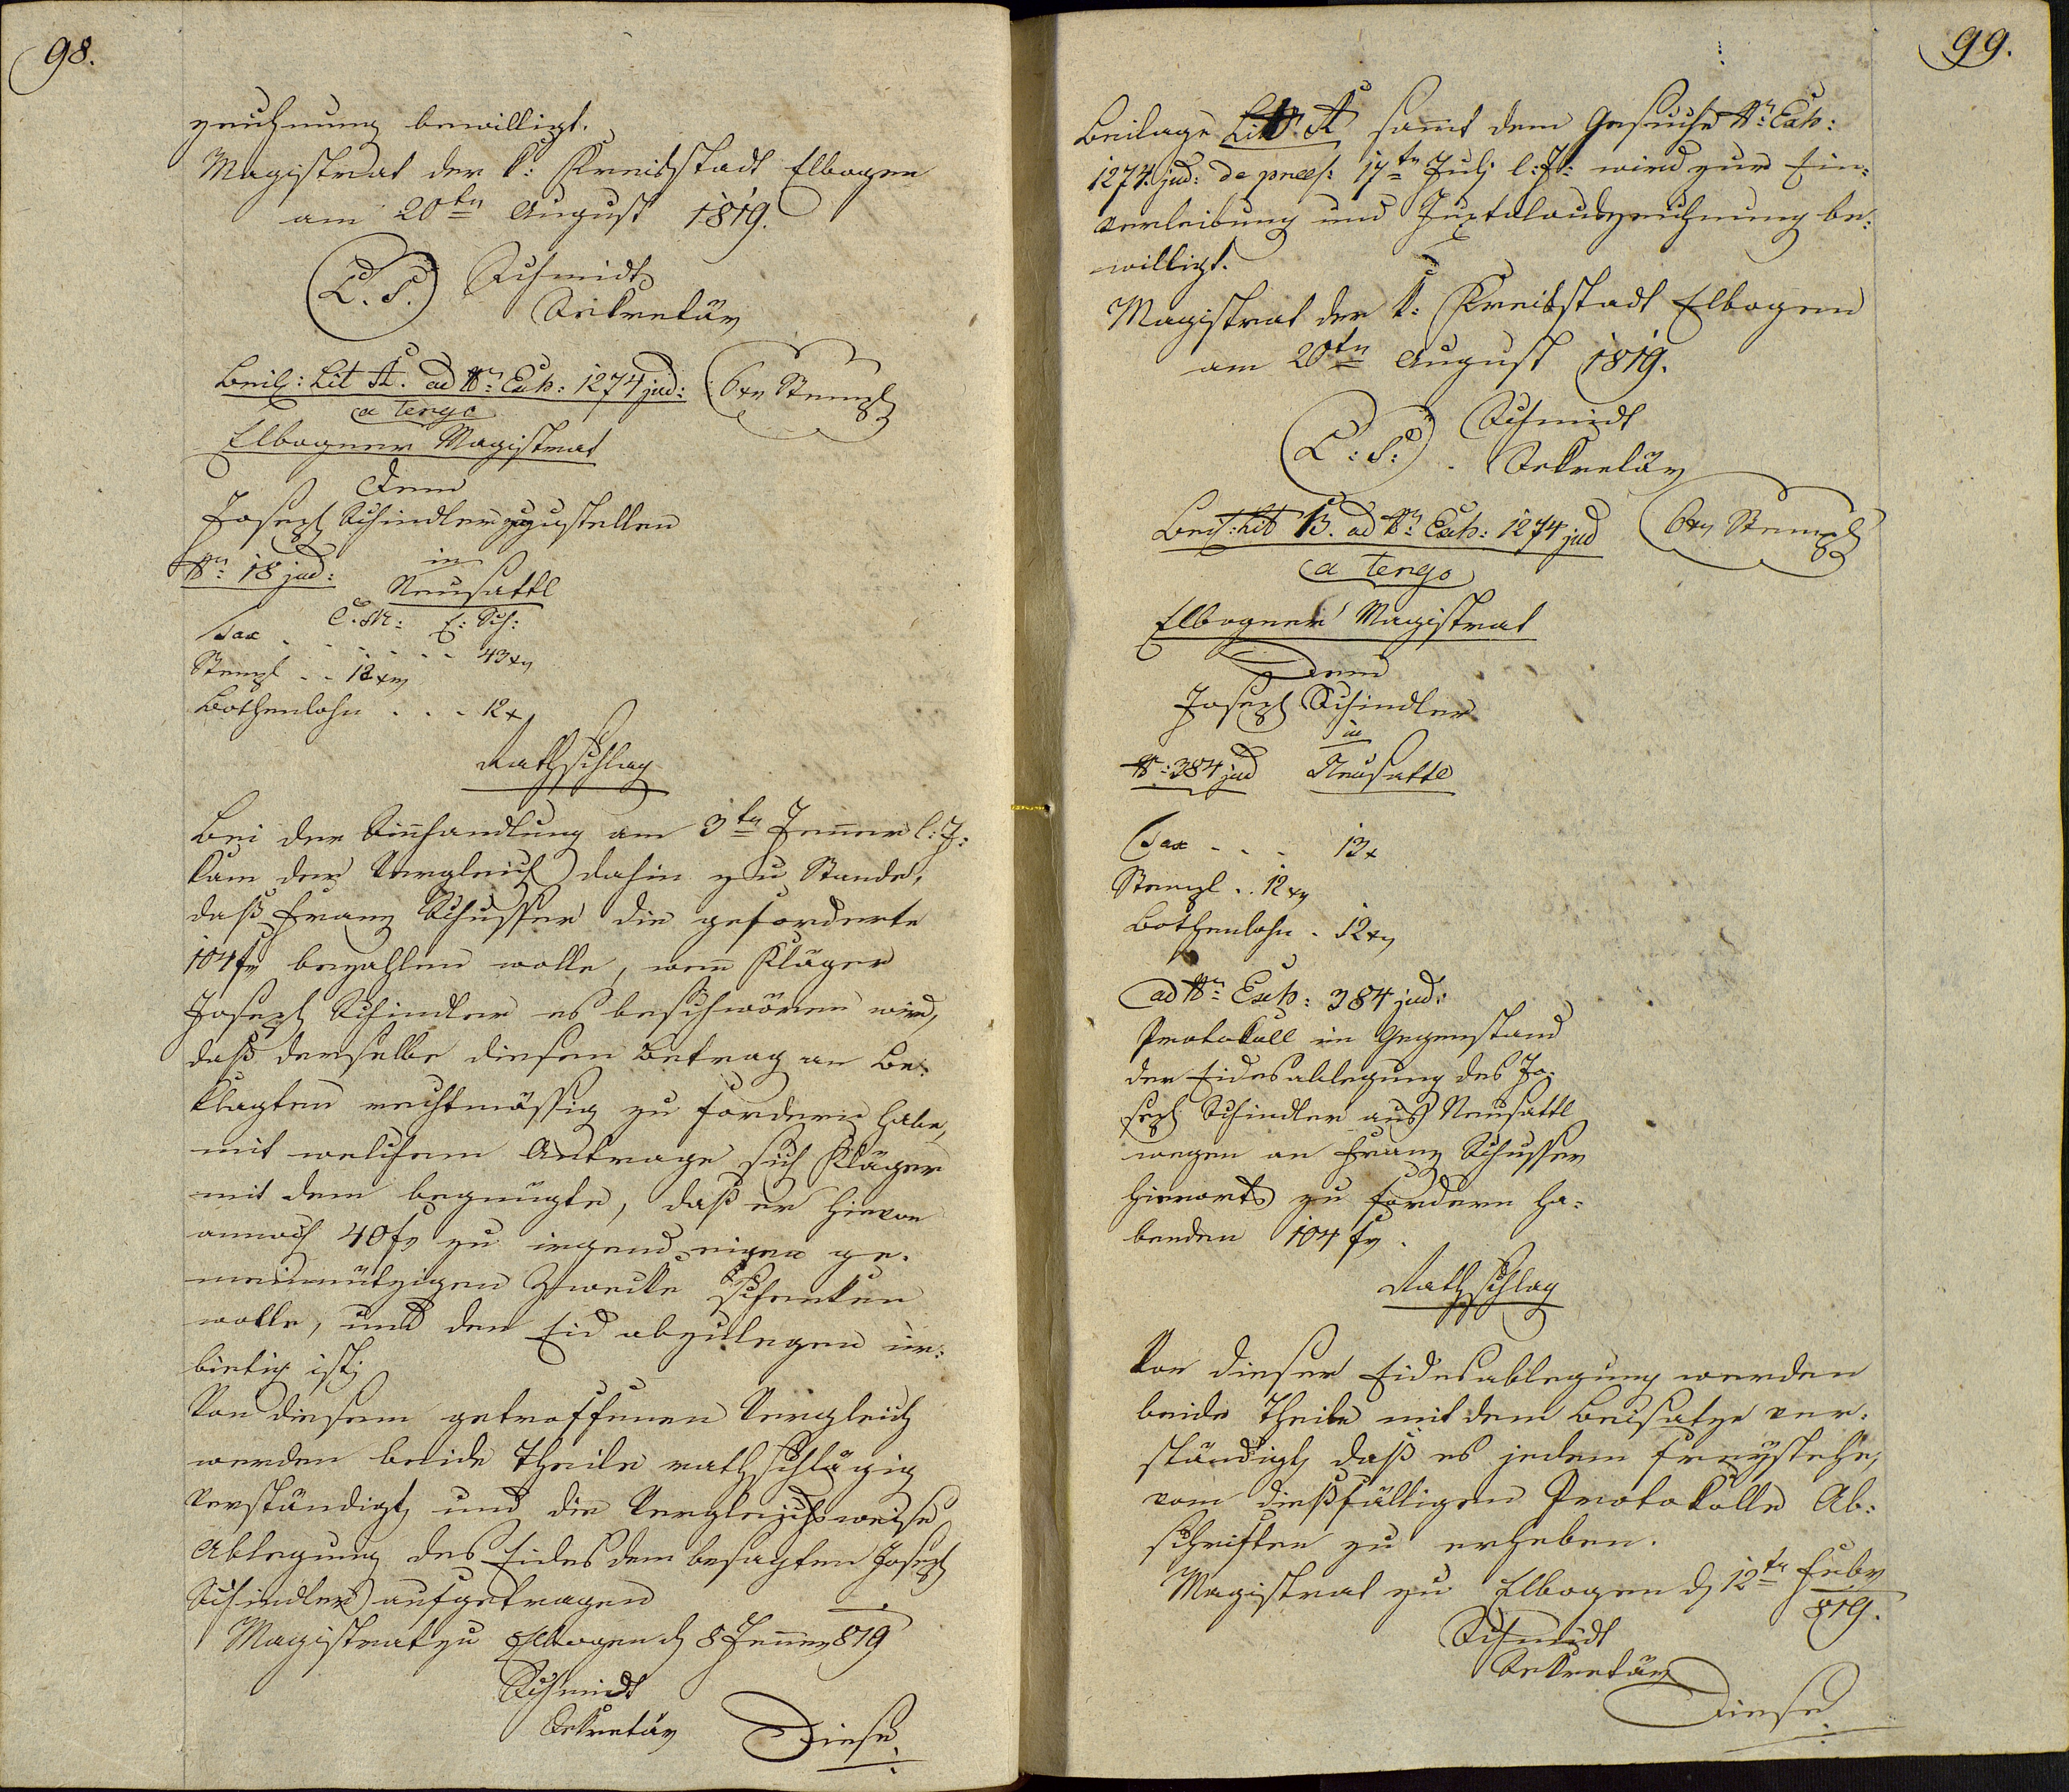 98.
zeichnung bewilligt.
Magistrat der k: Kreisstadt Elbogen
am 20ten August 1819.
L. S. Schmidt
Sekretär
Beil: Lit A. ad Nr: Exh: 1274 jud: 6 xr Stempl
a tergo
Elbogner Magistrat
Dem
Joseph Schindler zuzustellen
in
Nr: 18 jud:
Neusattl
C. M: E: Sch:
Tax . . . . . . 43 xr
Stempl . . 12 xr
Bothenlohn . . . 12 x
Rathschlag
Bei der Einhandlung am 3ten Jenner l: J:
kam der Vergleich dahin zu Stande,
daß Franz Schusser die geforderte
104 fr bezahlen wolle, wenn Kläger
Joseph Schindler es beschwören wird,
daß derselbe diesen Betrag an Be-
klagten rechtmässig zu fordern habe,
mit welchem Antrage sich Kläger
mit dem begnügte, daß er hievon
annoch 40 fr zu irgend einen ge-
meinnützigen Zwecke schenken
wolle, und den Eid abzulegen ur-
biethig ist;
Von diesem getroffenen Vergleich
werden beide Theile rathschlägig
verständigt, und die Vergleichsweise
Ablegung des Eides dem besagten Joseph
Schindler aufgetragen
Magistrat zu Elbogen d 8 Jenner 819
Schmidt
Sekretär
Diese
99.
Beilage Litt. A sammt dem Gesuche Nr: Exh:
1274. jud: de praes: 17ten Julj l: J: wird zur Ein-
verleibung und Juxtalauszeichnung be-
willigt.
Magistrat der k: Kreisstadt Elbogen
am 20ten August 1819.
L: S: Schmidt
Sekretär
Beil: Lit B. ad Nr: Exh: 1274 jud 6 xr Stempl
a tergo
Elbogner Magistrat
Dem
Joseph Schindler
in
Nr: 384 jud Neusattl
Tax . . . 13 x
Stempl . . 12 xr
Bothenlohn . 12 xr
ad Nr: Exh: 384 jud:
Protokoll im Gegenstand
der Eidesablegung des Jo-
seph Schindler aus Neusattl
wegen an Franz Schusser
hierorts zu fordern ha-
benden 104 fr.
Rathschlag
Von dieser Eidesablegung werden
beide Theile mit dem Beisatze ver-
ständigt, daß es jedem freystehe,
vom dießfälligen Protokolle Ab-
schriften zu erheben.
Magistrat zu Elbogen d 12ten Febr
819.
Schmidt
Sekretär
Diese